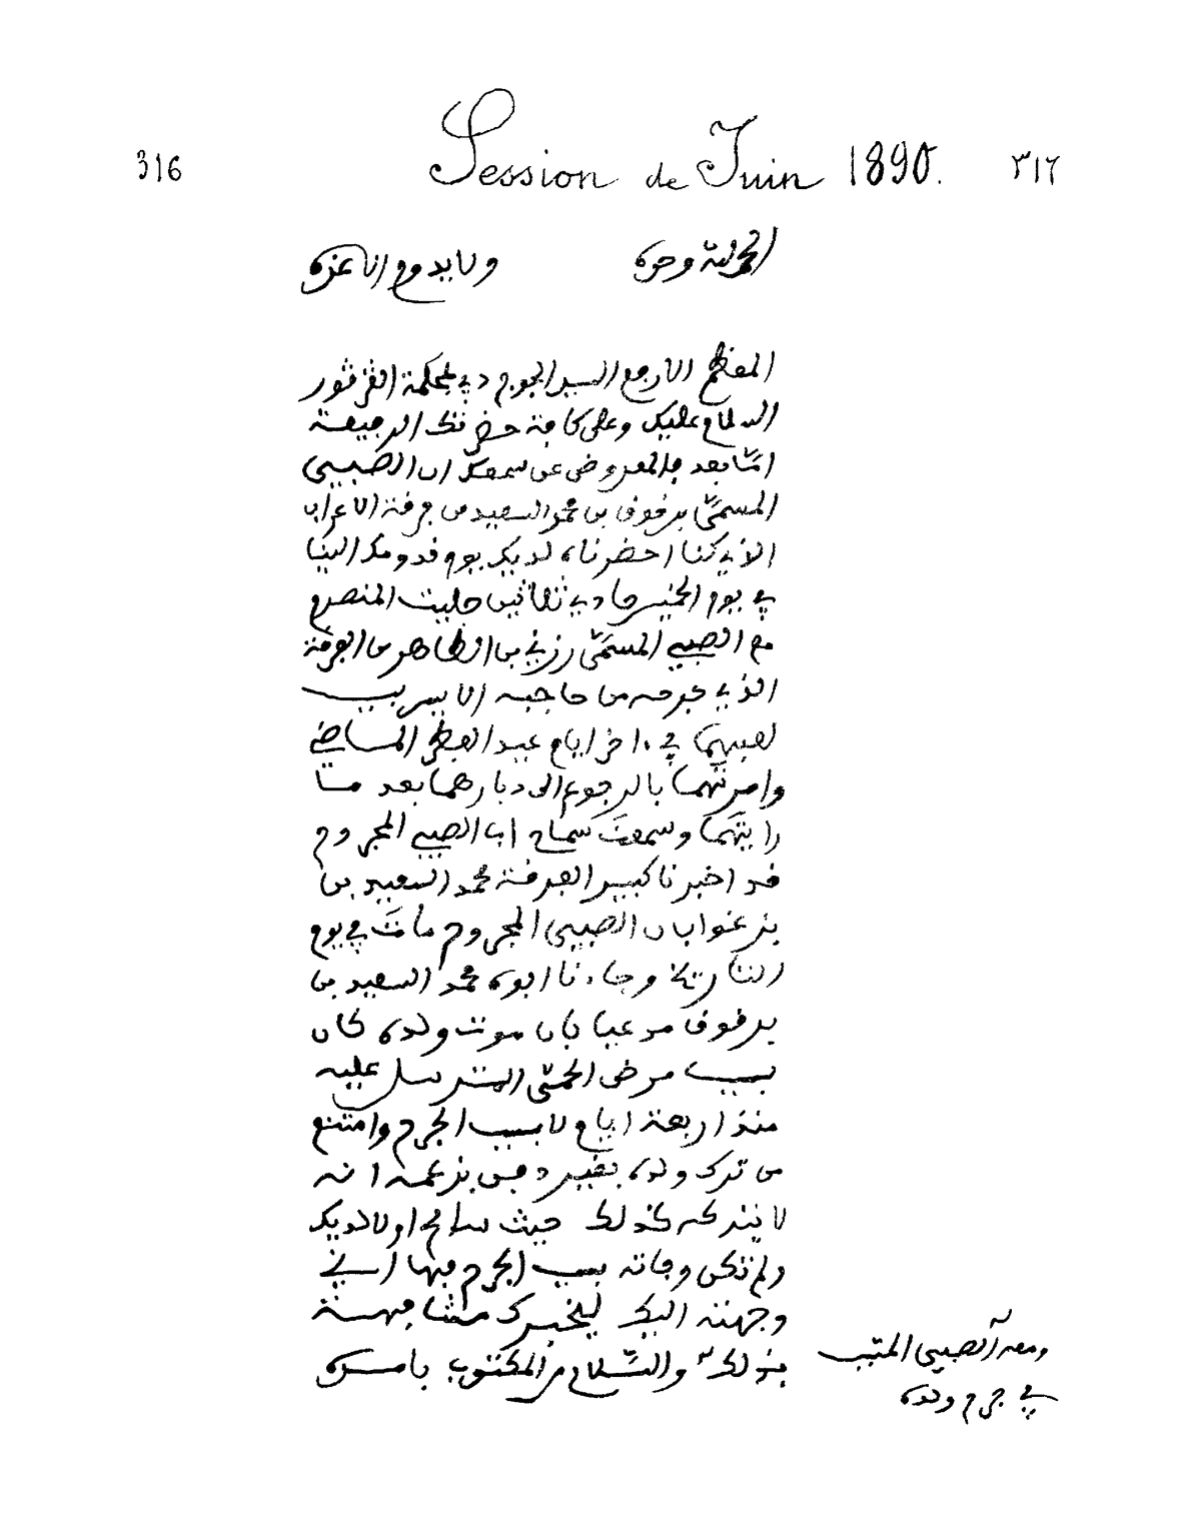 316 Session de Juin 1890. ٣١٦
الحمد لله وحده ولا يدوم الا عزه
المعظم الارفع السيد الجوج دي بمحكمة
السلام عليك وعلى كافة حضرتك الرفيعة
امّا بعد فالمعروض عن سمعك ان الصبيي
المسمّى برقوق بن محمد السعيد من فرقة الاعراب
الذي كنا احضرناه لديك يوم قدومك الينا
في يوم الخميس حادي ثلاثين جليت المنصرم
مع الصبيي المسمّى رزقي بن الطاهر من الفرقة
الذي جرحه من حاجبه الايسر بسبب
لعبهما في ءاخر ايام عيد الفطر الماضي
وامرتهما بالرجوع الى ديارهما بعد مـا
رايتَهما وسمعتَ سماح اب الصبيي المجروح
قد اخبرنا كبير الفرقة محمد السعيد بن
بان الصبيي المجروح ماتَ في يوم
التاريخ وجاءنا ابوه محمد السعيد بن
برقوق مدعيا بان موت ولده كان
بسبب مرض الحمّى عليه
منذ اربعة ايام لا بسبب الجرح وامتنع
من ترك ولده بغير دفن بزعمه انه
لا يتركه كذلك حيث سامح اولا لديك
ولم تكن وفاته بسبب الجرح فها انـي
وجهته اليك ليخبرك مشافهـة
بذلك والسّلام من المكتوب بامـره
ومعه الصبيي
في جرح ولده